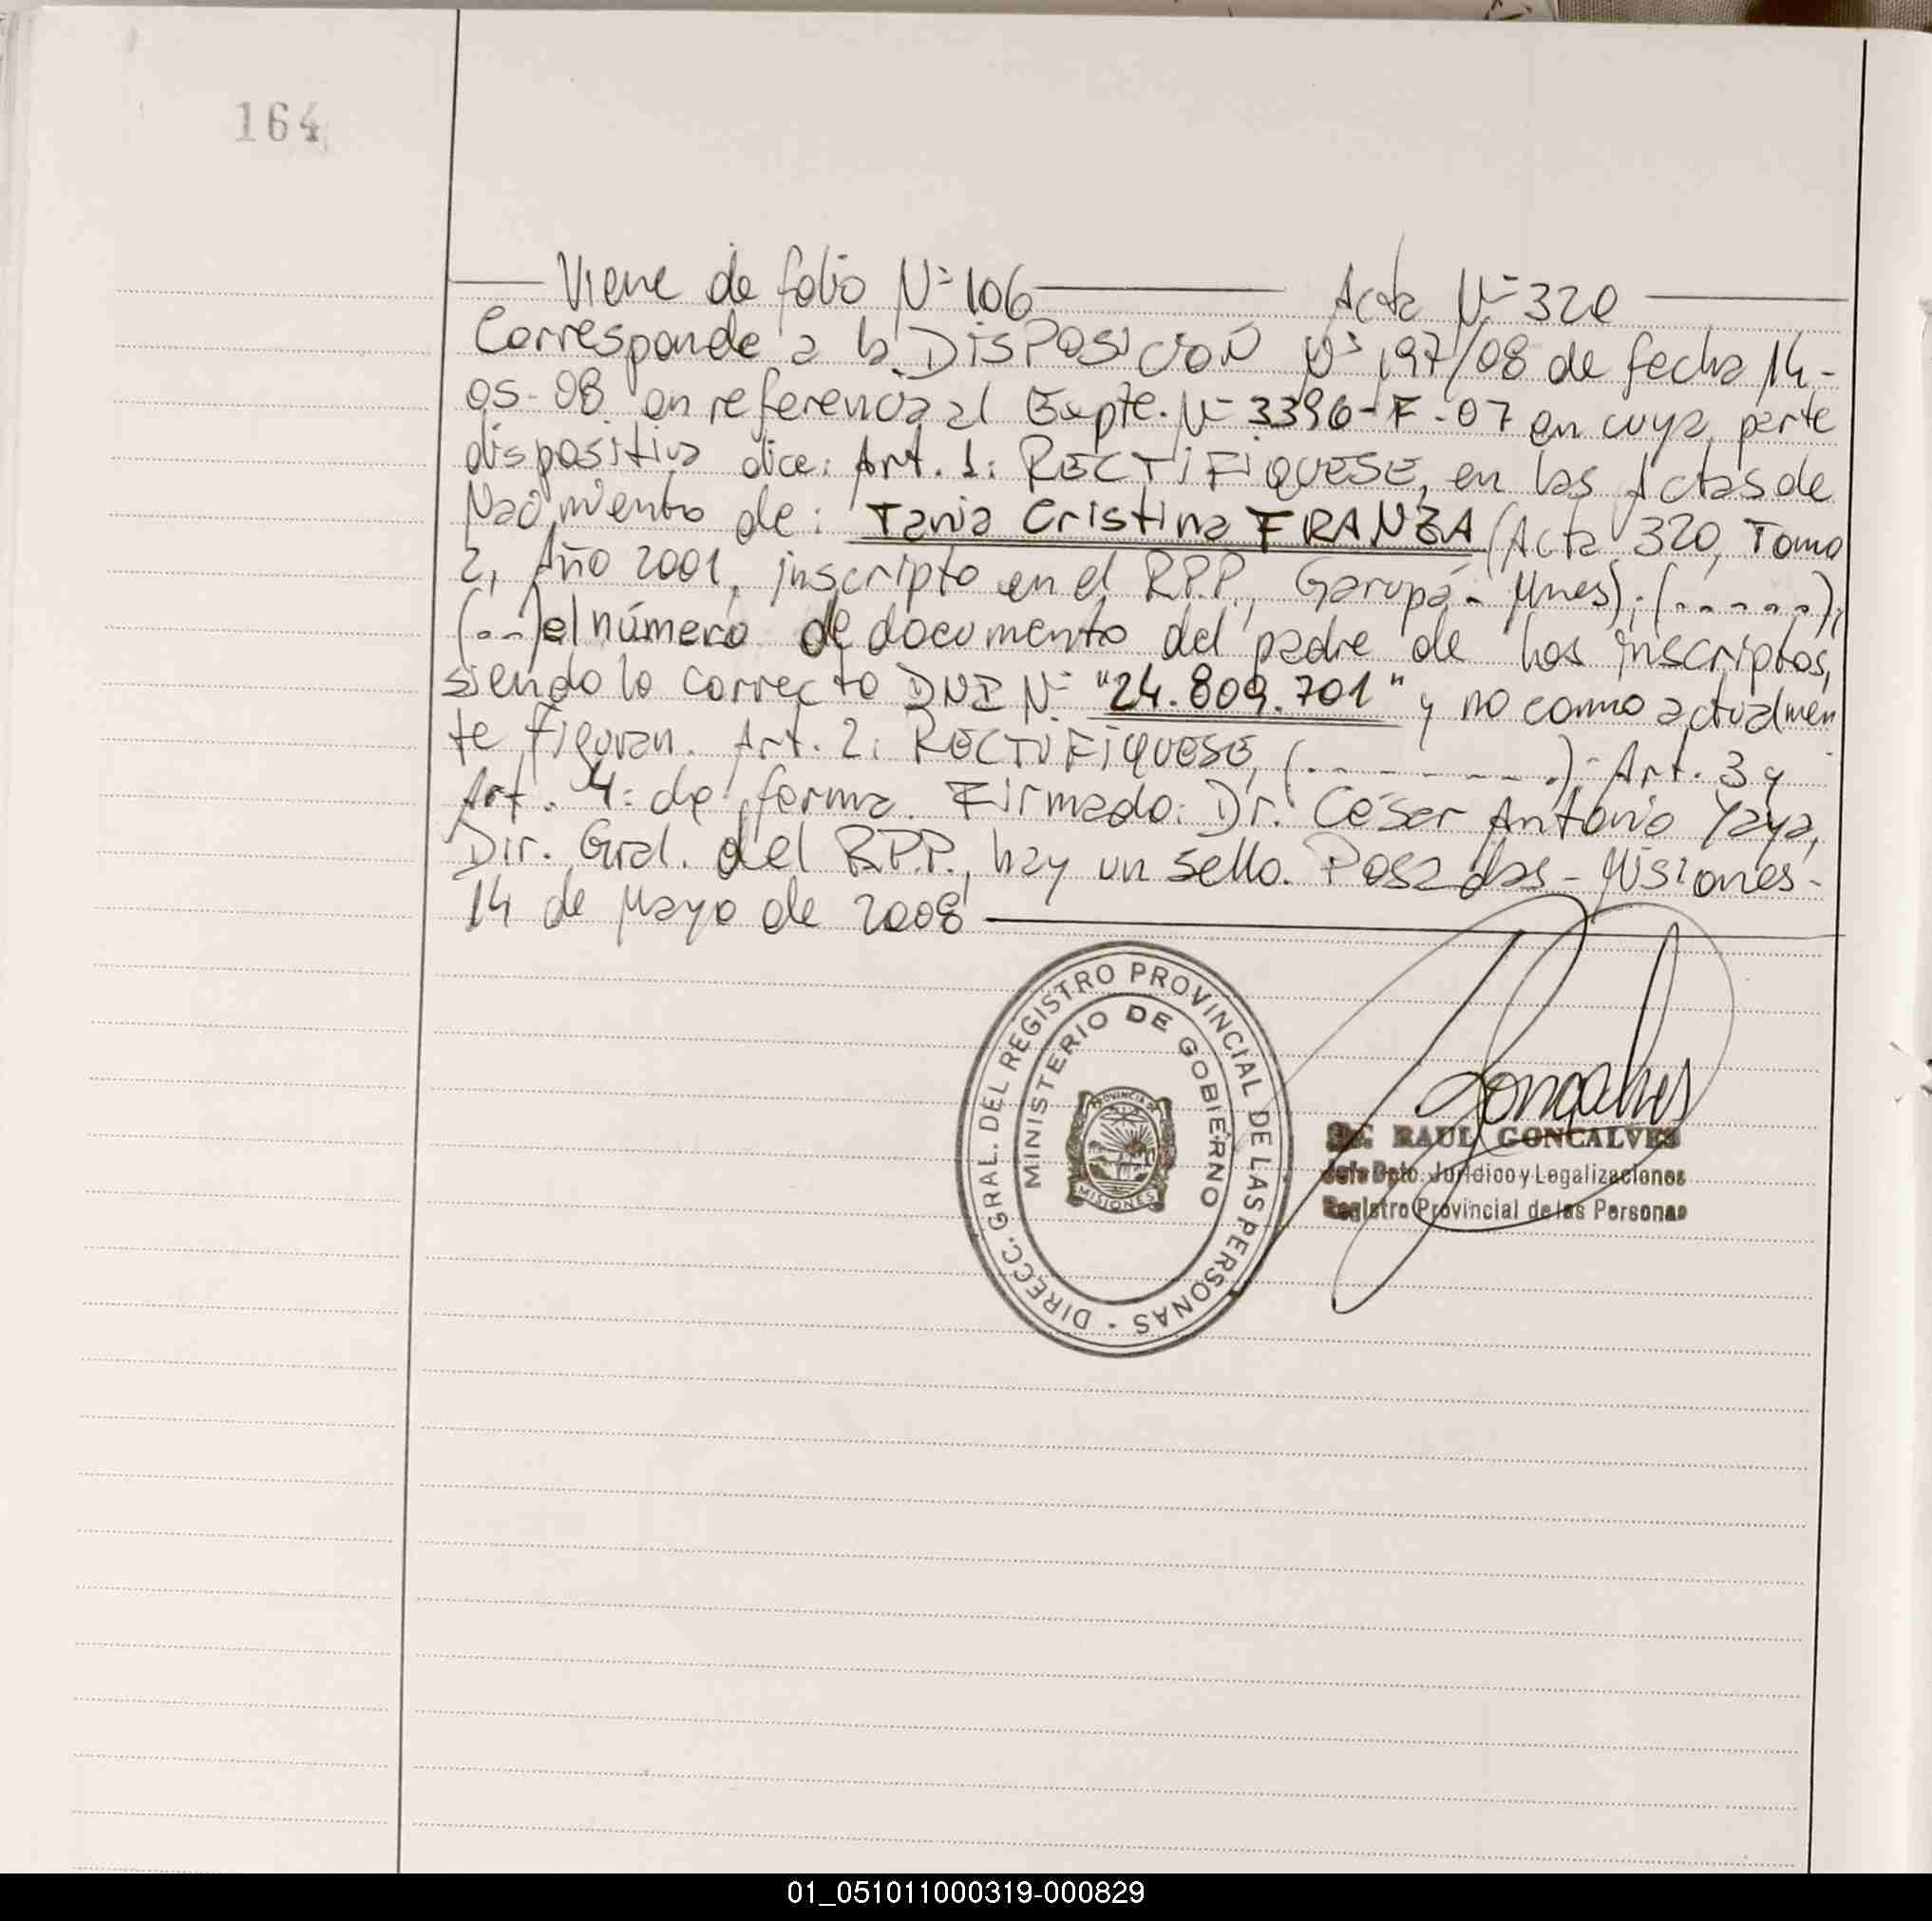 164
Viene de folio Nº 106 Acta Nº 320
Corresponde a la DISPOSICIÓN Nº 197/08 de fecha 14-
05-08 en referencia al Expte. Nº 3396-F-07 en cuya parte
dispositiva dice: Art. 1: RECTIFIQUESE, en las Actas de
Nacimiento de: Tania Cristina FRANZA (Acta 320, Tomo
2, Año 2001, inscripto en el R.P.P., Garupá - Mnes); (......);
(...) el número de documento del padre de los inscriptos,
siendo lo correcto DNI Nº "24.809.701" y no como actualmen
te figuran. Art. 2: RECTIFIQUESE, (..........); Art. 3 y
Art. 4: de forma. Firmado: Dr. César Antonio Yaya,
Dir. Gral. del R.P.P., hay un sello. Posadas - Misiones -
14 de Mayo de 2008
DIRECC. GRAL. DEL REGISTRO PROVINCIAL DE LAS PERSONAS -
MINISTERIO DE GOBIERNO
PROVINCIA DE
MISIONES
Goncalves
Dr. RAUL GONCALVES
Jefe Dpto. Jurídico y Legalizaciones
Registro Provincial de las Personas
01_051011000319-000829